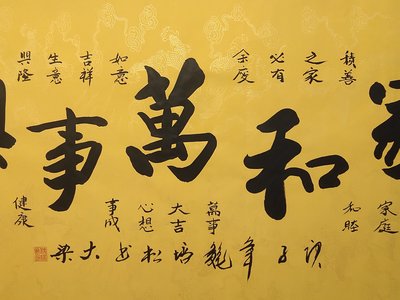 家和萬事興
積善
之家
必有
余慶
如意
吉祥
生意
興隆
家庭
和睦
萬事
大吉
心想
事成
健康
子年魏松书大梁